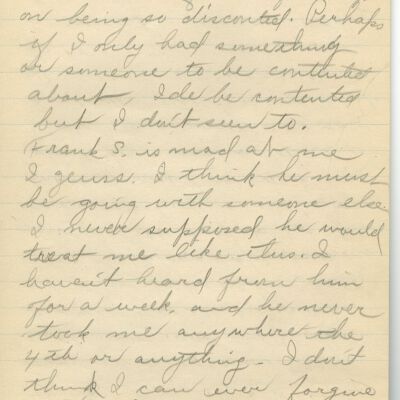 on being so disconted. Perhaps
if I only had something
or someone to be contented
about, Ide be contented
but I don't seem to.
Frank S. is mad at me
I geuss. I think he must
be going with someone else.
I never supposed he would
treat me like this. I
haven't heard from him
for a week, and he never
took me anywhere the
4th or anything. I don't
think I can ever forgive